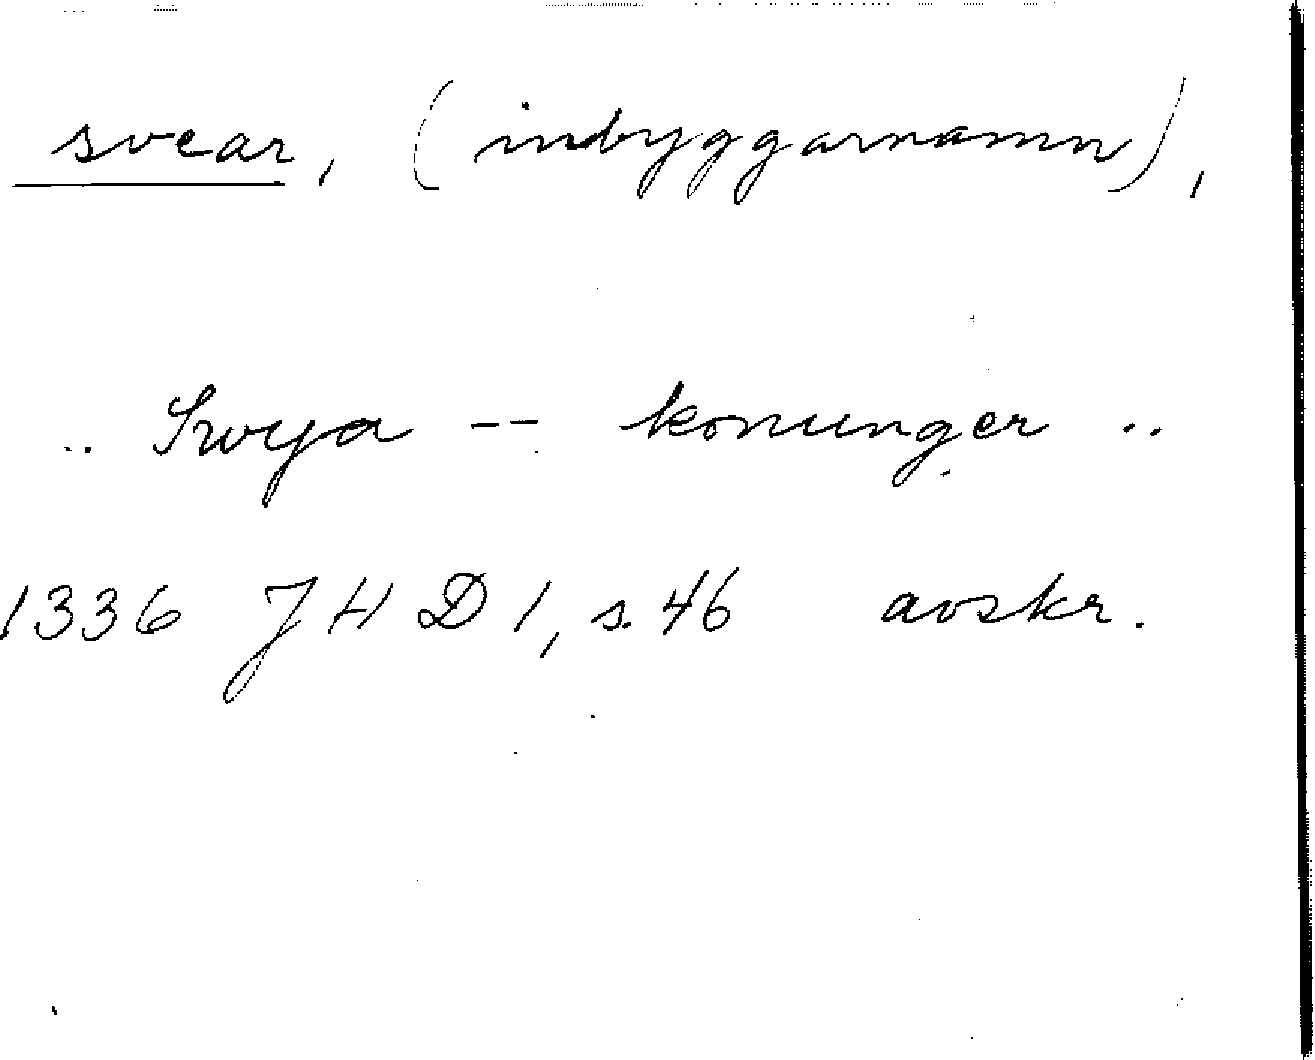 svear, (inbyggarnamn),
.. Swya -- konunger ..
1336 JHD 1, s. 46 avskr.